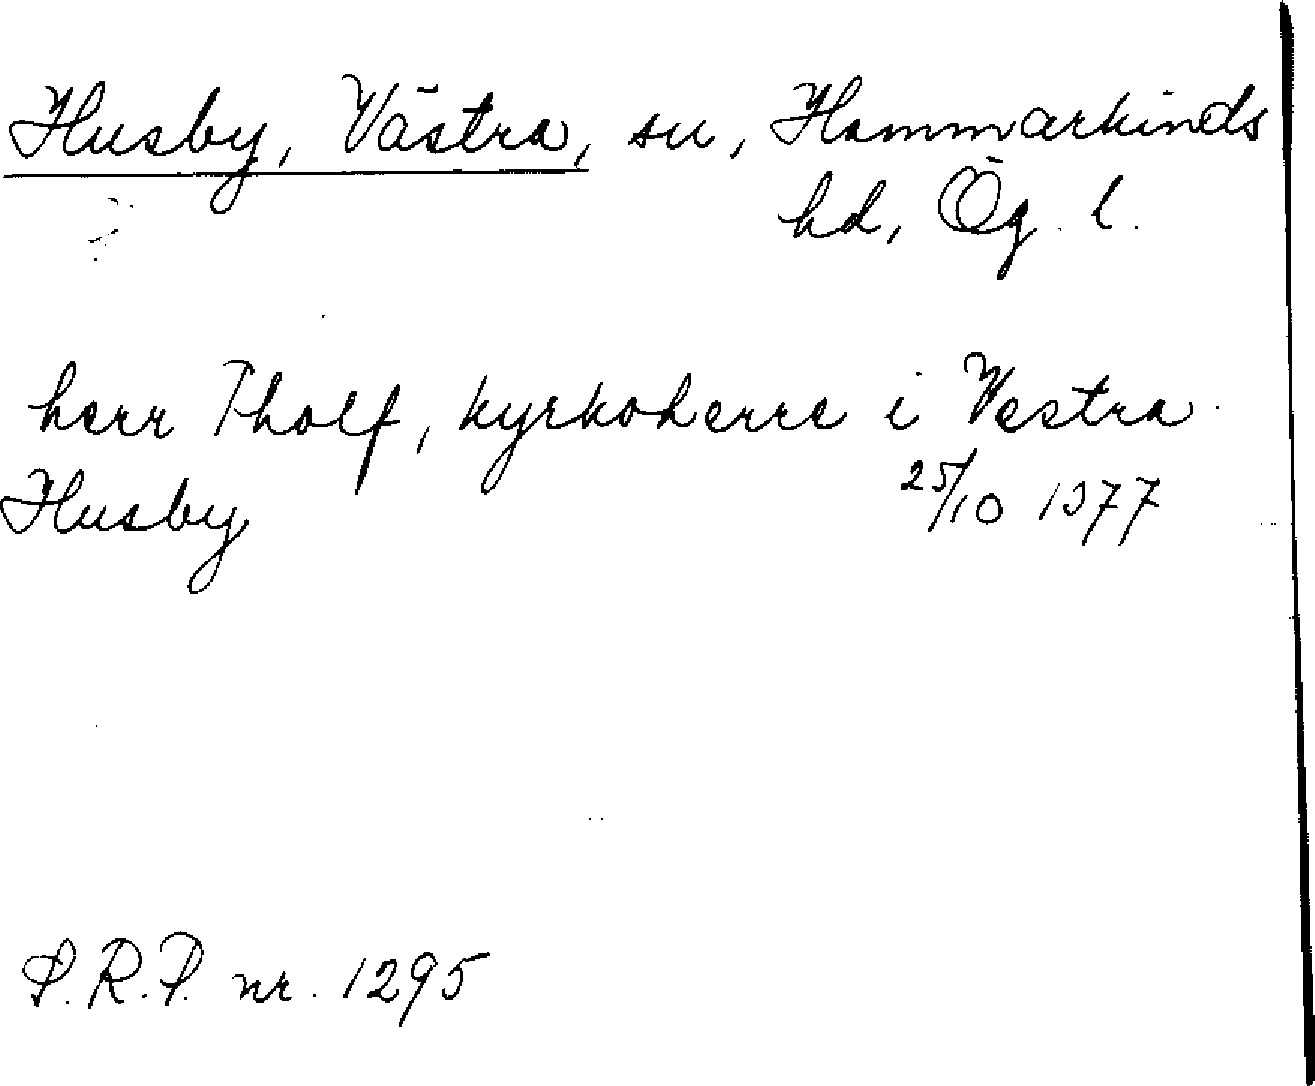 Husby, Västra, sn, Hammarkinds
hd, Ög. l.
herr Tholf, kyrkoherre i Vestra
Husby 25/10 1377
S.R.P. nr. 1295